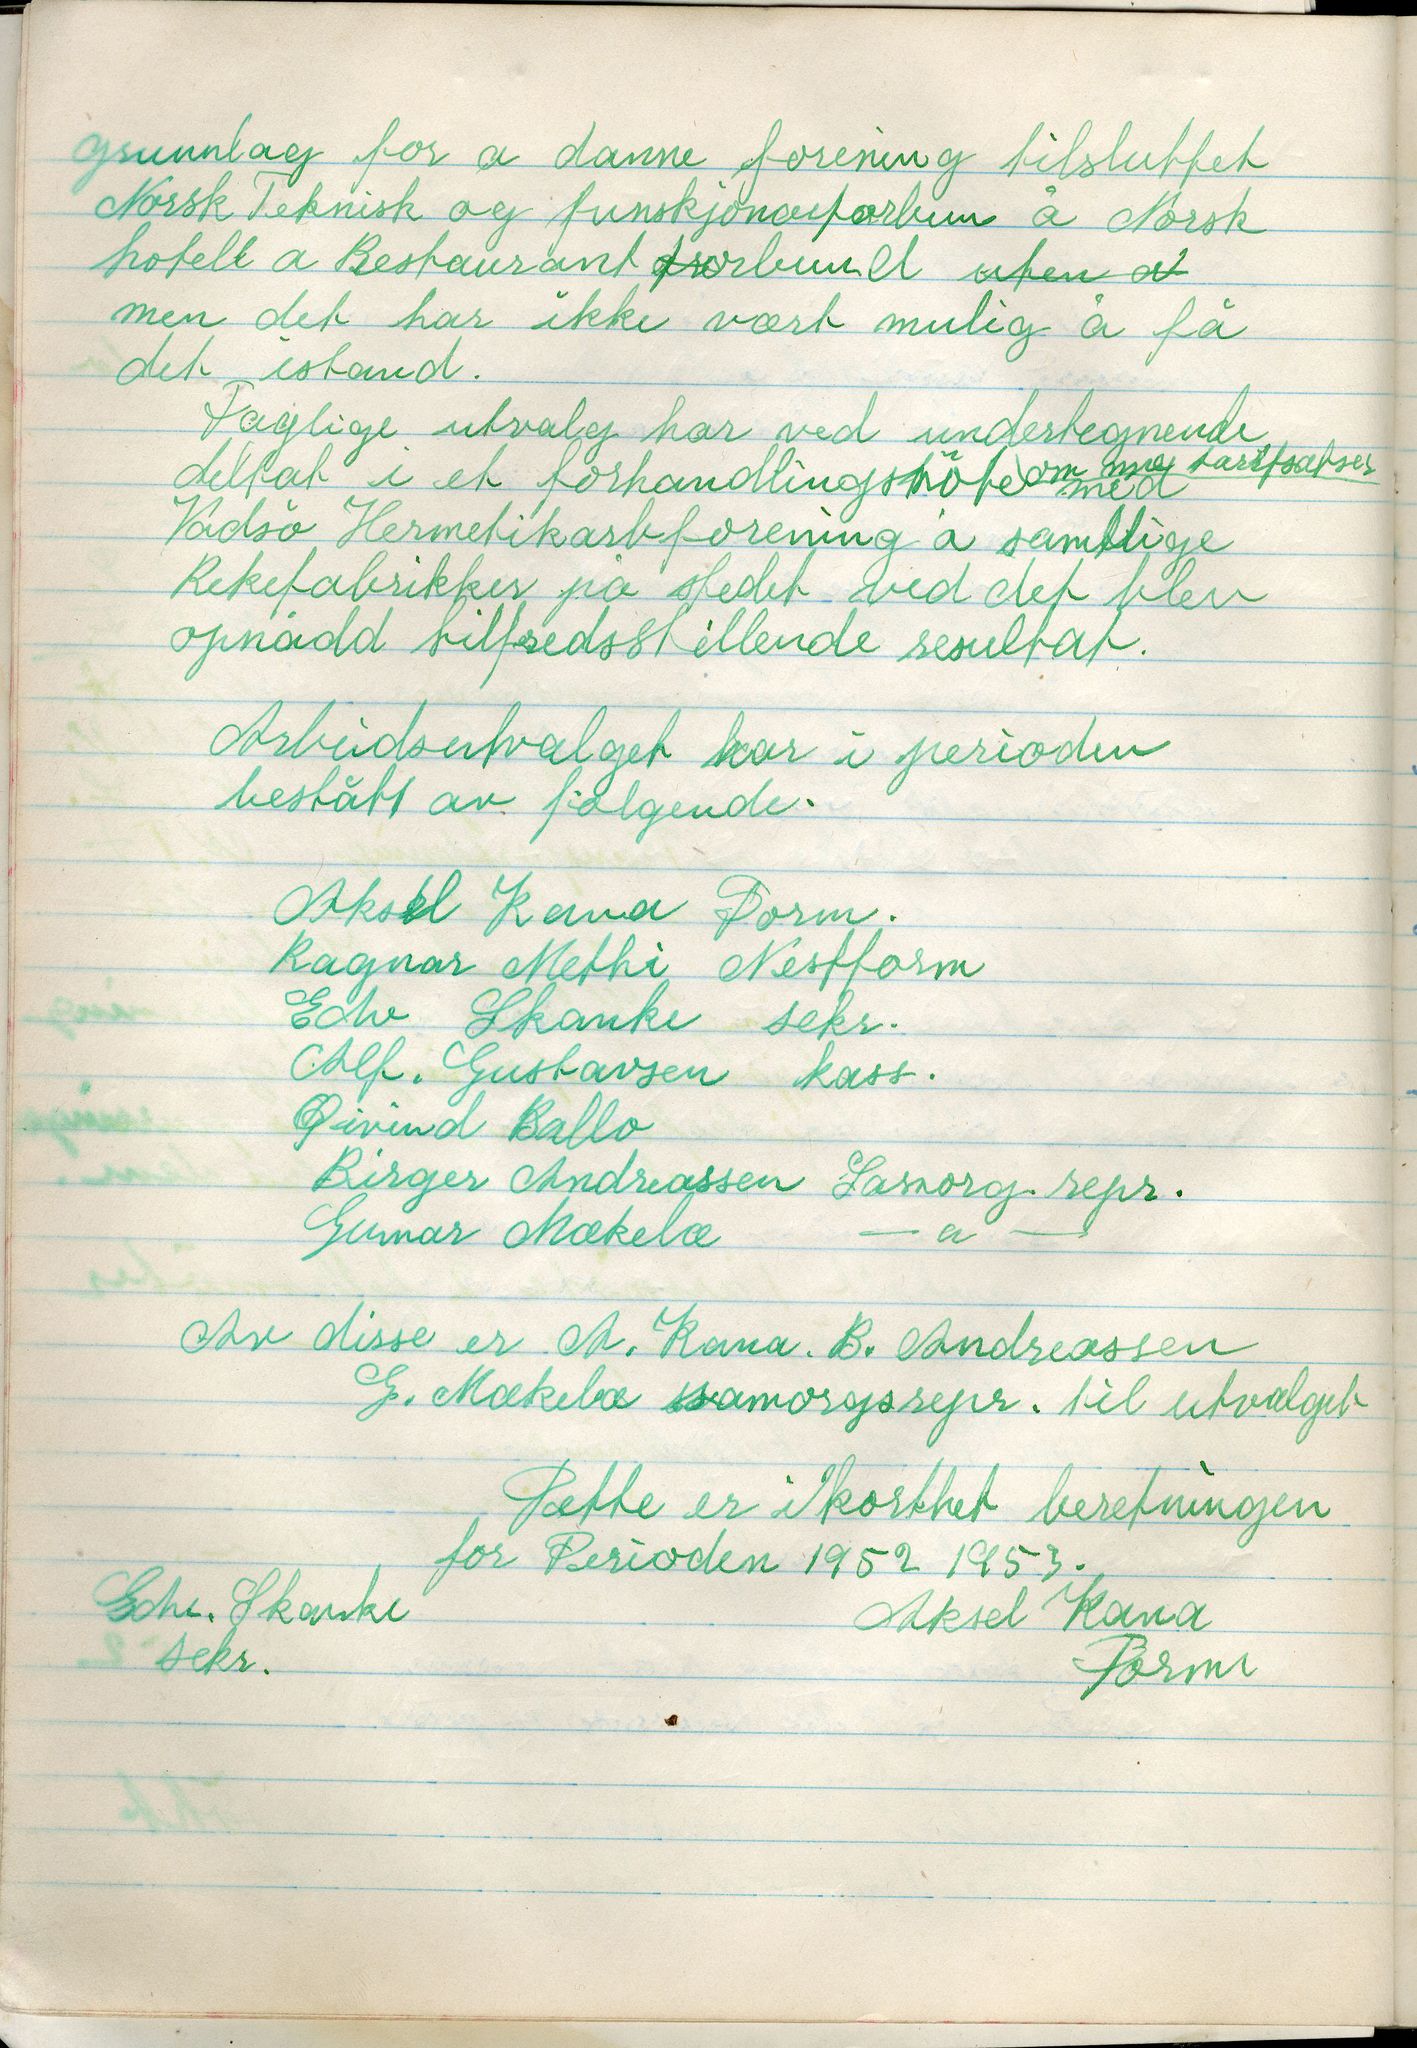 grunnlag for a danne forening tilsluttet
Norsk Teknisk og funskjonæforbun å Norsk
hotell a Restaurant forbund uten a
men det har ikke vært mulig å få
det istand.
Faglige utvalg har ved undertegnende
deltat i et forhandlingsmöte om nye tarifsatser med
Vadsö Hermetikarbforening å samtlige
Rekefabrikker på stedet ved det blev
opnådd tilfredsstillende resultat.
Arbeidsutvalget har i perioden
bestått av følgende.
Aksel Kana Form.
Ragnar Methi Nestform
Edv Skanke sekr.
Alf. Gustavsen kass.
Øivind Ballo
Birger Andreassen Samorg. repr.
Gunnar Mækelæ — a —
Av disse er A. Kana. B. Andreassen
G. Mækelæ samorgsrepr. til utvalget
Dette er i korthet beretningen
for Perioden 1952 1953.
Edv. Skanke Aksel Kana
sekr. Form